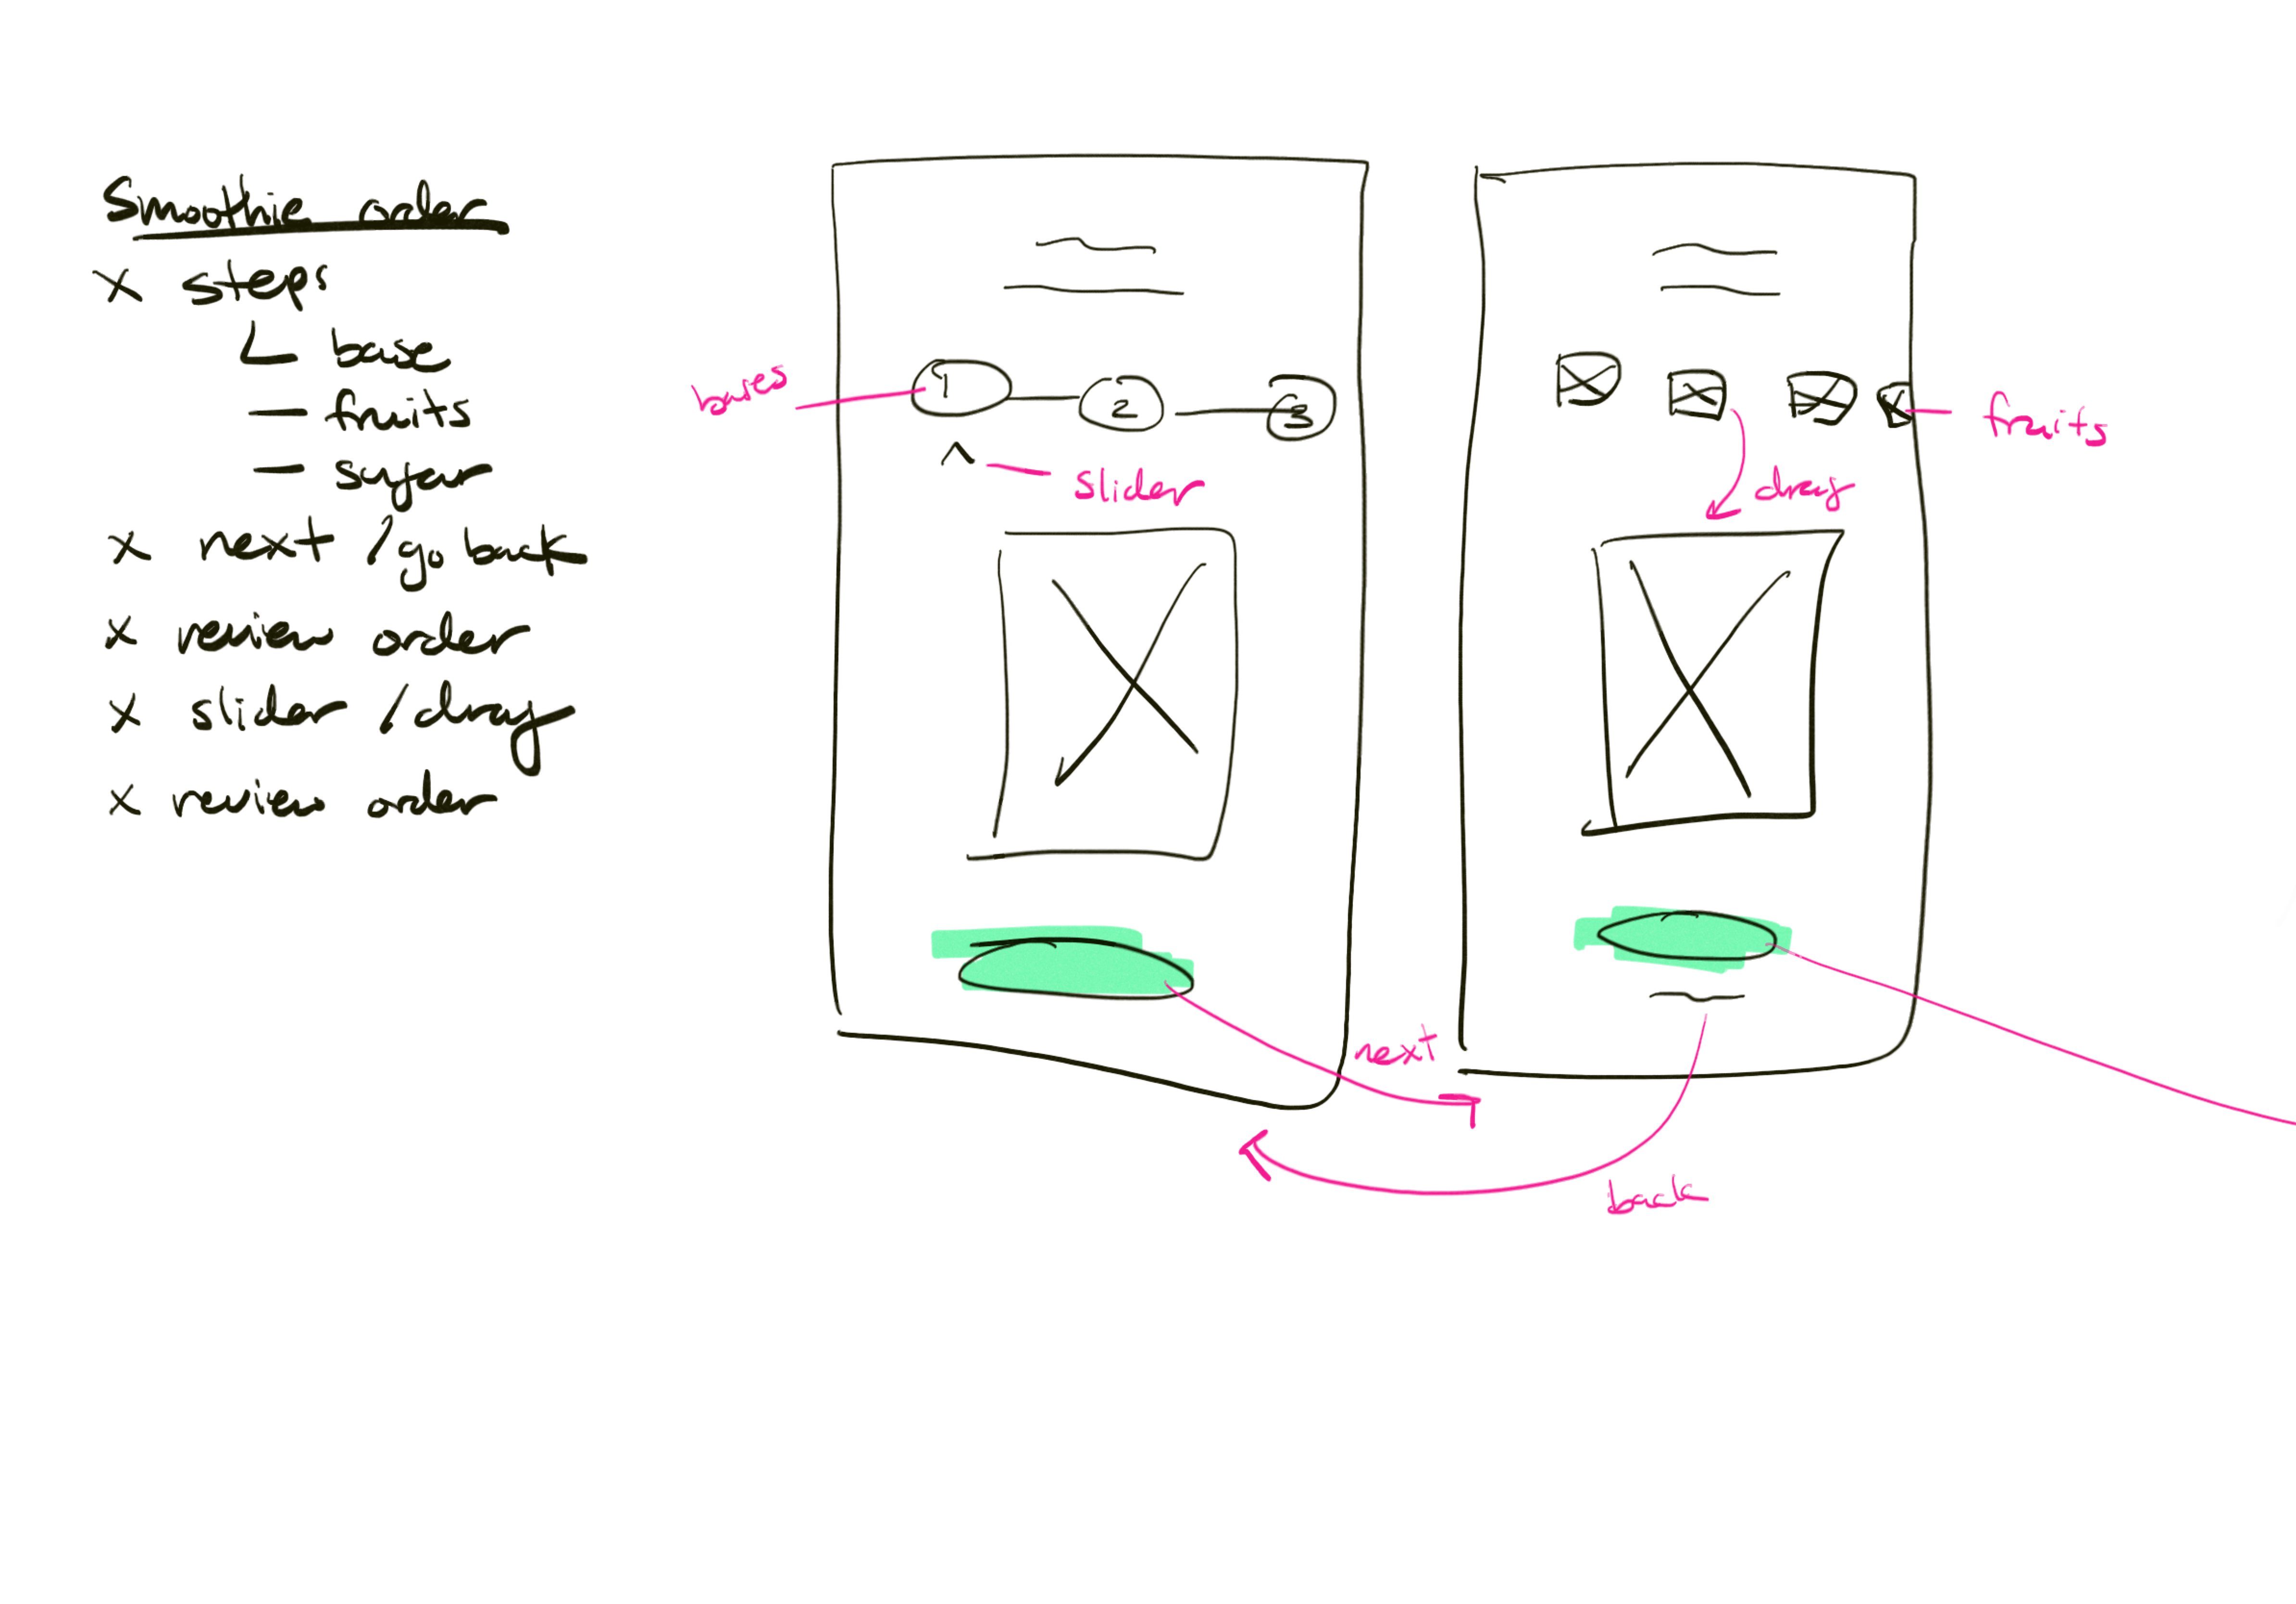 Smoothie order
x steps
base
fruits
sugar
x next / go back
x review order
x slider / drag
x review order
bases
1 2 3
slider
next
fruits
drag
back